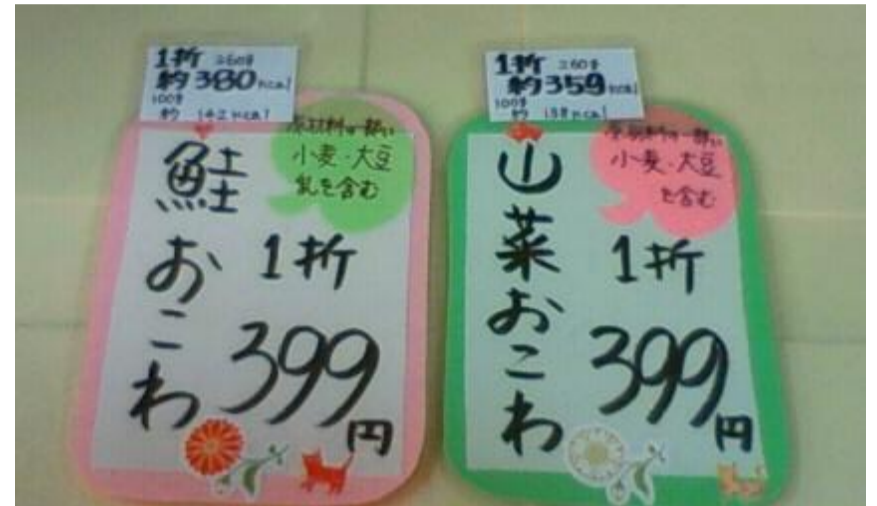 1折 260g
約380kcal
100g
約 142kcal
原材料の一部に
小麦・大豆
乳を含む
鮭おこわ
1折
399円
1折 260g
約359kcal
100g
約 138kcal
原材料の一部に
小麦・大豆
を含む
山菜おこわ
1折
399円